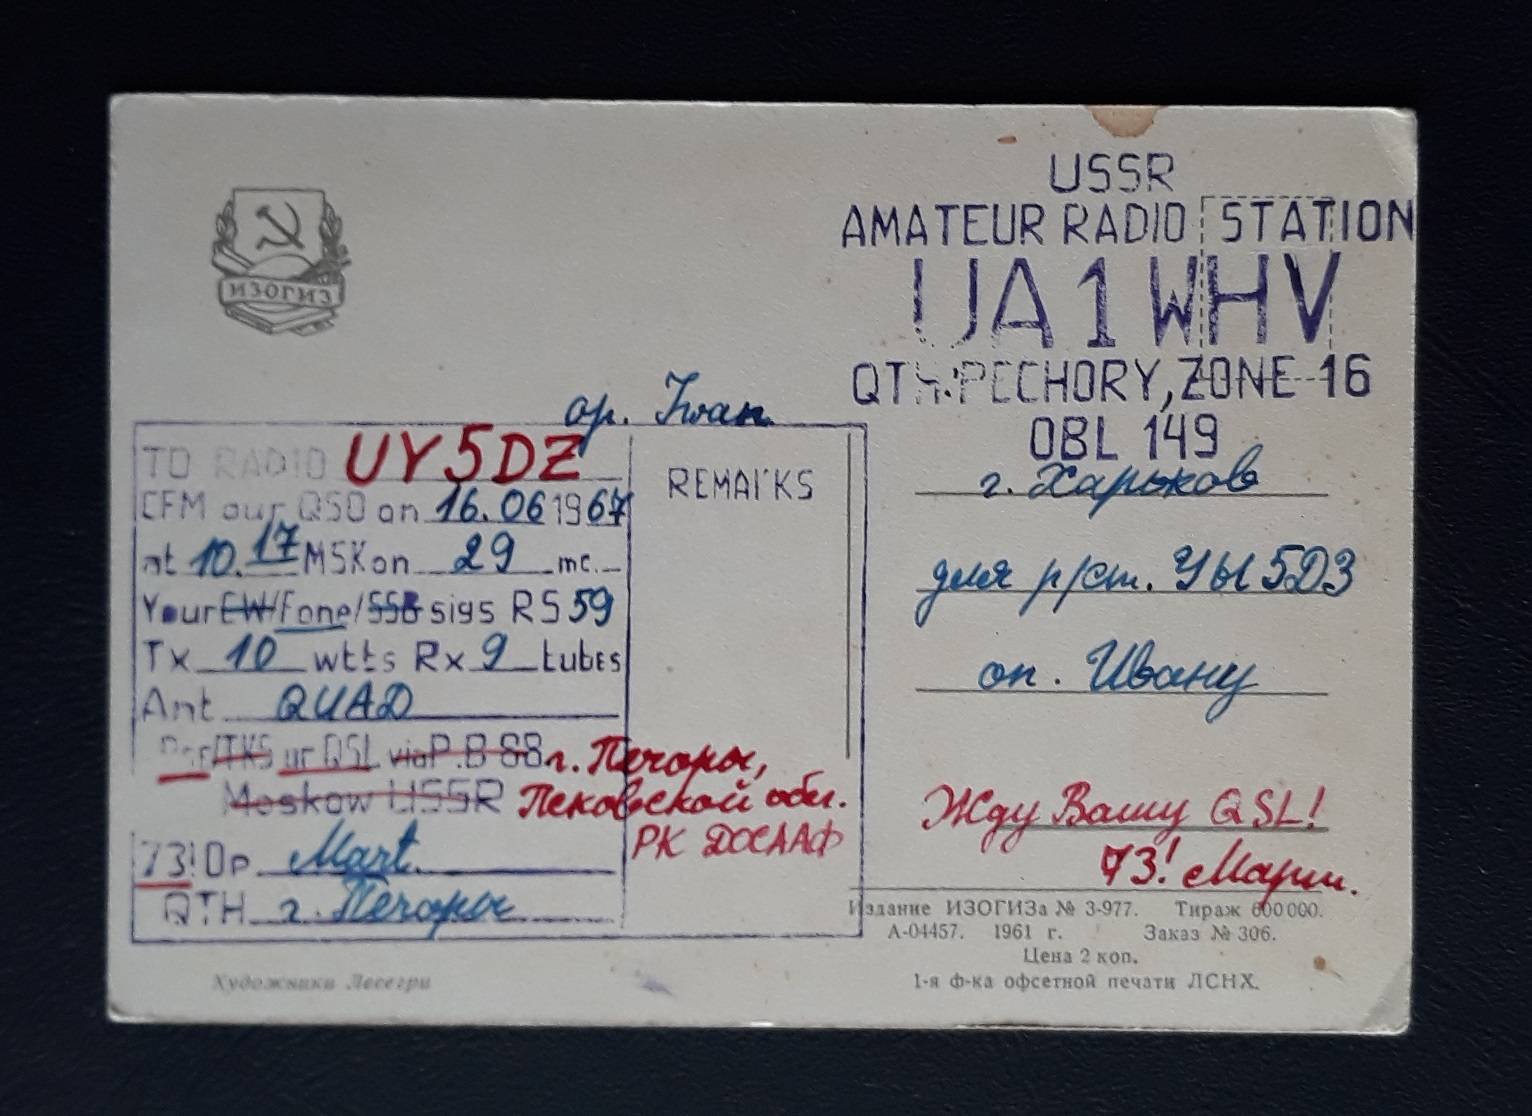 ИЗОГИЗ
USSR
AMATEUR RADIO STATION
UA1WHV
QTH: PECHORY, ZONE 16
OBL 149
op. Iwan
TO RADIO UY5DZ
CFM our QSO on 16.06 1967
at 10.17 MSK on 29 mc.
Your CW/Fone/SSB sigs RS 59
Tx 10 wtts Rx 9 tubes
Ant QUAD
Pse/TKS ur QSL via P.B 88 г. Печоры,
Moskow USSR Псковской обл.
РК ДОСААФ
73! Op Mart.
QTH г. Печоры
REMARKS
г. Харьков
для р/ст. УЫ5ДЗ
оп. Ивану
Жду Вашу QSL!
73! Марти.
Издание ИЗОГИЗа № 3-977. Тираж 600 000.
А-04457. 1961 г. Заказ № 306.
Цена 2 коп.
1-я ф-ка офсетной печати ЛСНХ.
Художники Лесегри